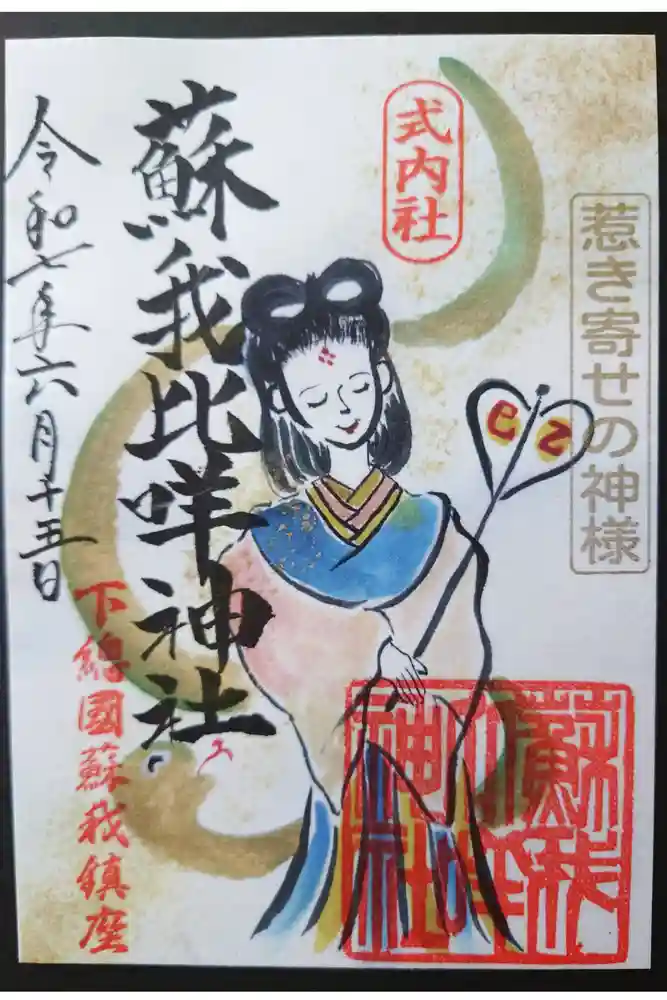 惹き寄せの神様
式内社
蘇我比咩神社
令和七年六月十五日
下總國蘇我鎮座
蘇我
比咩
神社